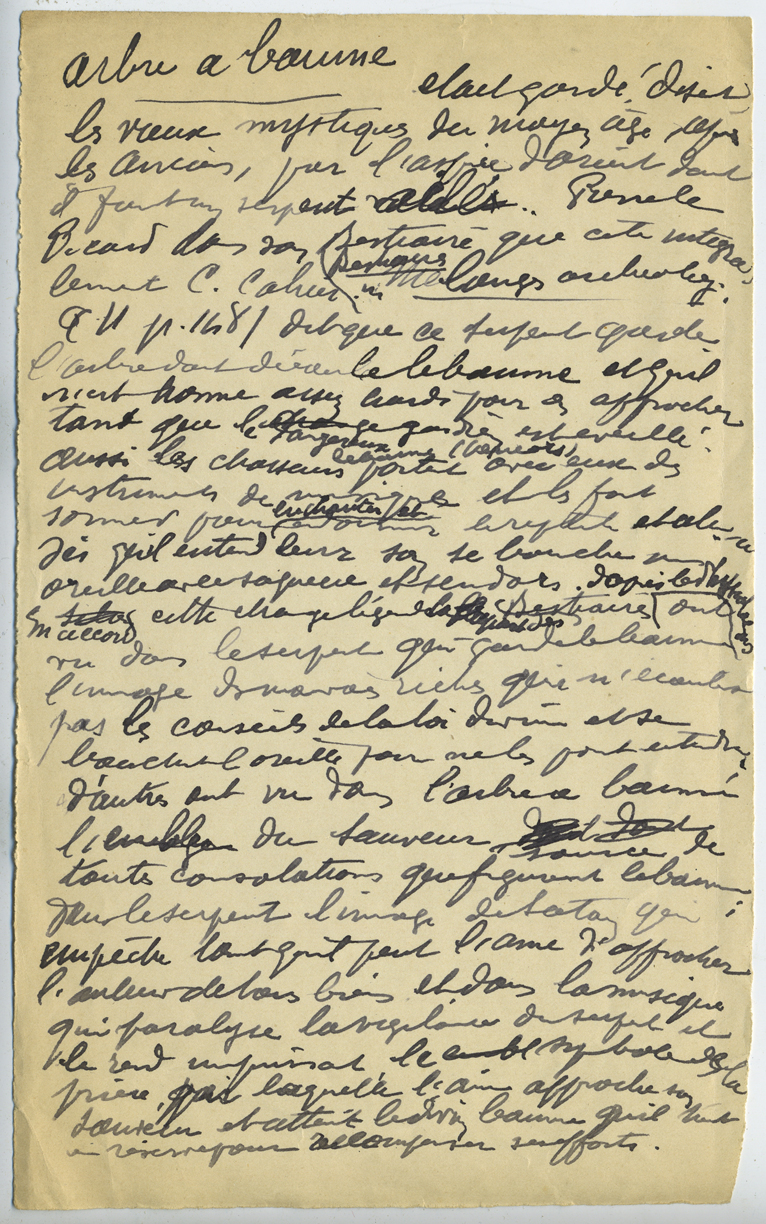 arbre a baume
etait gardé, disent
les vieux mystiques du moyen âge, après
les anciens, par l'aspic d'orient dont
il font un serpent ailé. Pierre le
Picard dans son Bestiaire que cite integra
lement C. Cahier in Melanges archeolog.
T II p. 148/ dit que ce serpent garde
l'arbre dont découle le baume et qu'il
n'est homme assez hardi pour en approcher
tant que le gardien est eveillé.
le dangereux
aussi les chasseurs de baume portent avec eux des
instruments de musique et les font
sonner pour enchanter et endormir le serpent et
dès qu'il entend leurs son se bouche une
oreille avec sa queue et s'endort. D'après
En accord cette etrange légende la plupart des Bestiaires ont
vu dans le serpent qui garde le baume
l'image du mauvais riche qui n'écoute
pas les conseils de la loi divine et se
bouchent l'oreille pour ne les point entendre
d'autres ont vu dans l'arbre a baume
l'emblème du Sauveur source de
toutes consolations que figurent le baume ;
dans le serpent l'image de Satan qui
empêche tant qu'il peut l'ame d'approcher
l'auteur de tous biens et dans la musique
qui paralyse la vigilance du serpent et
le rend impuissant le symbole de la
prière, par laquelle l'ame approche son
Sauveur et atteint le divin baume qu'il tient
en réserve pour recompenser ses efforts.